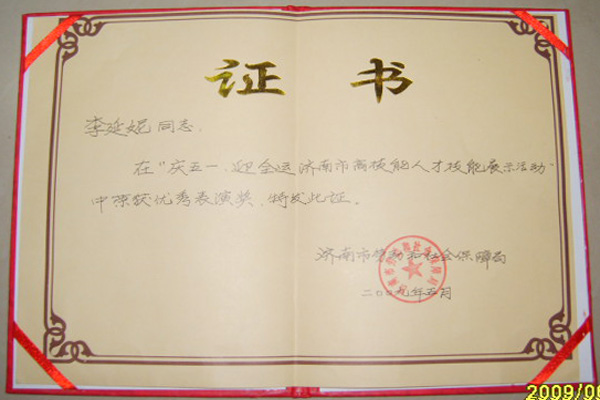 证 书
李延妮同志:
在“庆五一、迎全运济南市高技能人才技能展示活动”
中荣获优秀表演奖、特发此证。
济南市劳动和社会保障局
二00九年五月
2009/06